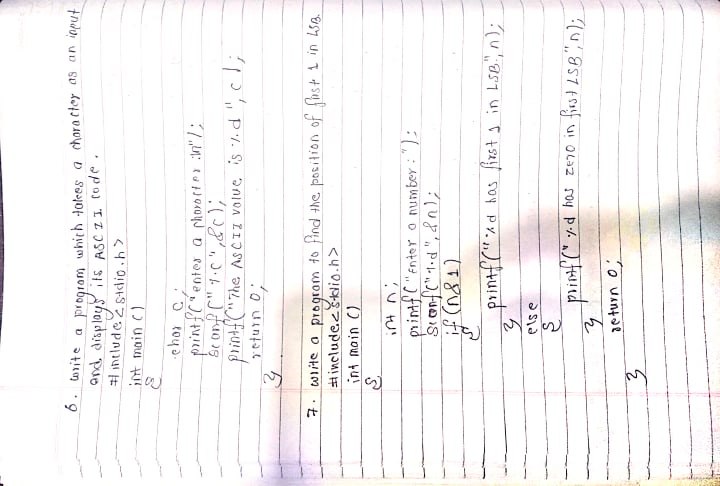 6. write a program which takes a character as an input
and displays its ASCII code.
#include<stdio.h>
int main ()
{
char c;
printf("enter a character :\n");
scanf("%c",&c);
printf("The ASCII value is %d", c);
return 0;
}
7. write a program to find the position of first 1 in LSB.
#include<stdio.h>
int main ()
{
int n;
printf("Enter a number : ");
scanf("%d",&n);
if (n&1)
{
printf("%d has first 1 in LSB", n);
}
else
{
printf("%d has zero in first LSB", n);
}
return 0;
}